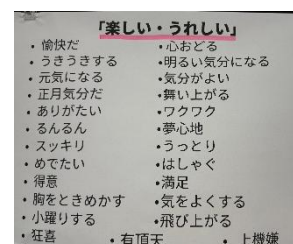 「楽しい・うれしい」
・愉快だ
・うきうきする
・元気になる
・正月気分だ
・ありがたい
・るんるん
・スッキリ
・めでたい
・得意
・胸をときめかす
・小躍りする
・狂喜
・心おどる
・明るい気分になる
・気分がよい
・舞い上がる
・ワクワク
・夢心地
・うっとり
・はしゃぐ
・満足
・気をよくする
・飛び上がる
・有頂天
・上機嫌